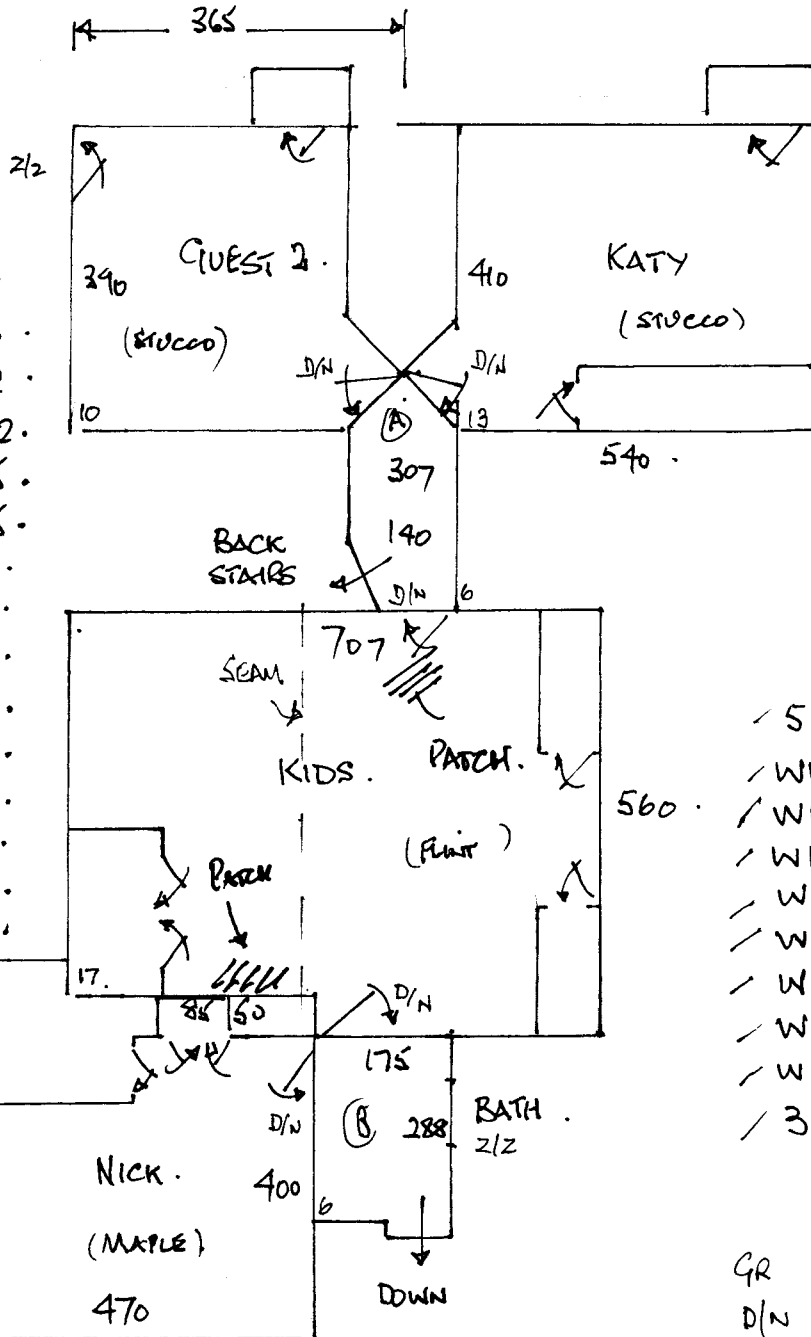 365
2/2
GUEST 2.
390
(STUCCO)
410
KATY
(STUCCO)
D/N
D/N
10
A
13
307
540.
140
BACK
STAIRS
D/N
6
707
SEAM
KIDS.
PATCH.
560.
(FLINT)
PATCH
17.
85
50
D/N
175
D/N
B
288
BATH.
2/2
NICK.
400
6
(MAPLE)
470
DOWN
2.
5
W
W
W
W
W
W
W
W
3
GR
D/N